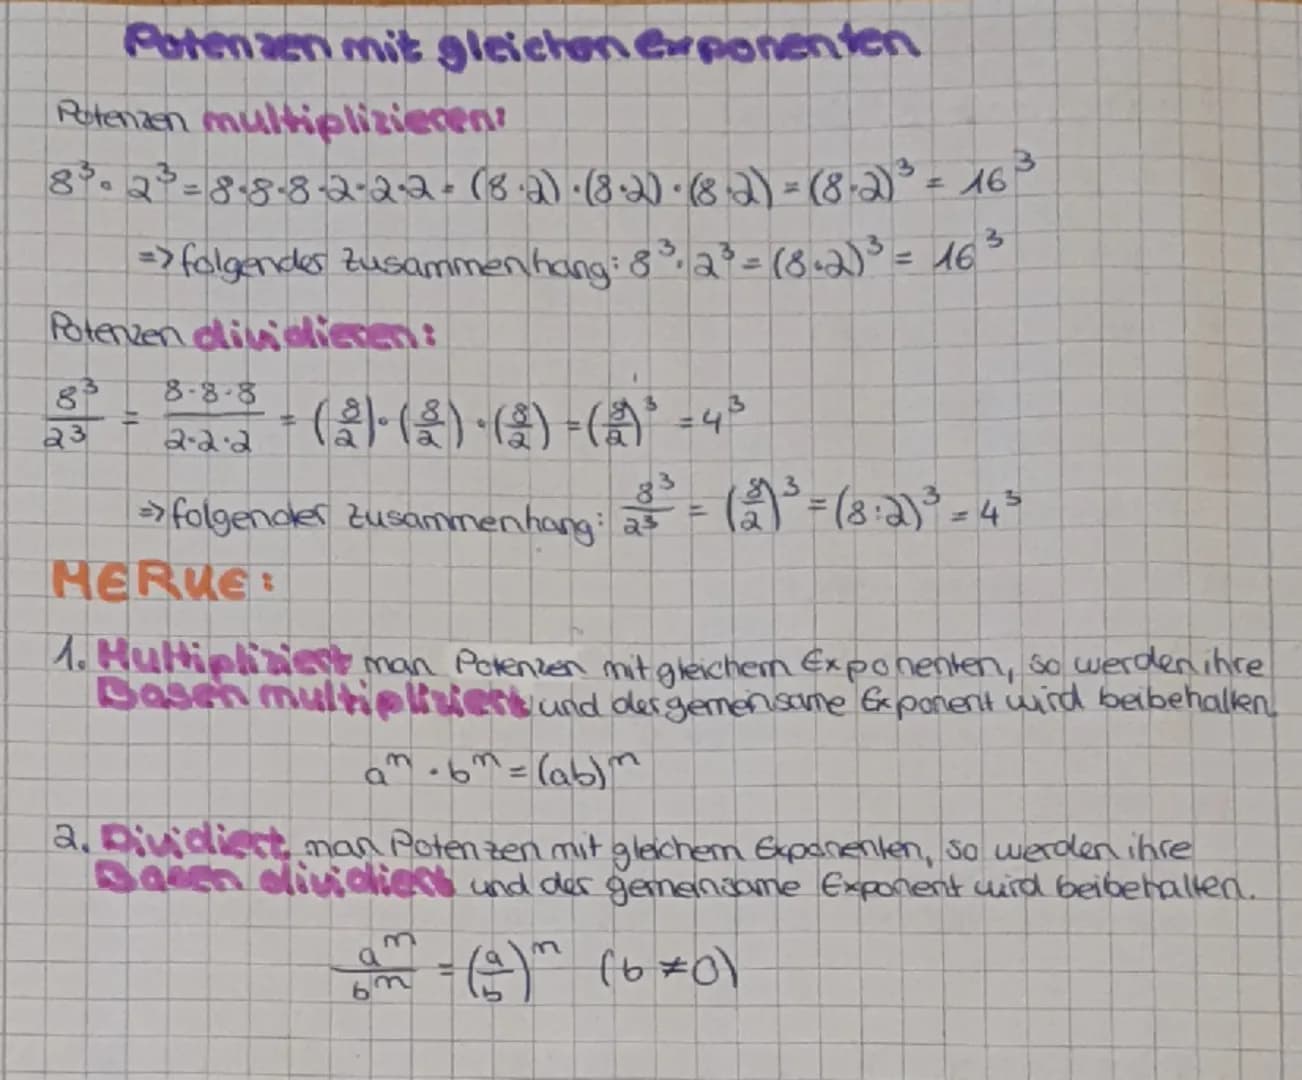 Potenzen mit gleichen Exponenten
Potenzen multiplizieren:
8³ · 2³ = 8·8·8·2·2·2 = (8·2)·(8·2)·(8·2) = (8·2)³ = 16³
=> folgender Zusammenhang: 8³·2³ = (8·2)³ = 16³
Potenzen dividieren:
8³/2³ = 8·8·8/2·2·2 = (8/2)·(8/2)·(8/2) = (8/2)³ = 4³
=> folgender Zusammenhang: 8³/2³ = (8/2)³ = (8:2)³ = 4³
MERKE:
1. Multipliziert man Potenzen mit gleichem Exponenten, so werden ihre
Basen multipliziert und der gemeinsame Exponent wird beibehalten
aᵐ · bᵐ = (ab)ᵐ
2. Dividiert man Potenzen mit gleichem Exponenten, so werden ihre
Basen dividiert und der gemeinsame Exponent wird beibehalten.
aᵐ/bᵐ = (a/b)ᵐ (b ≠ 0)